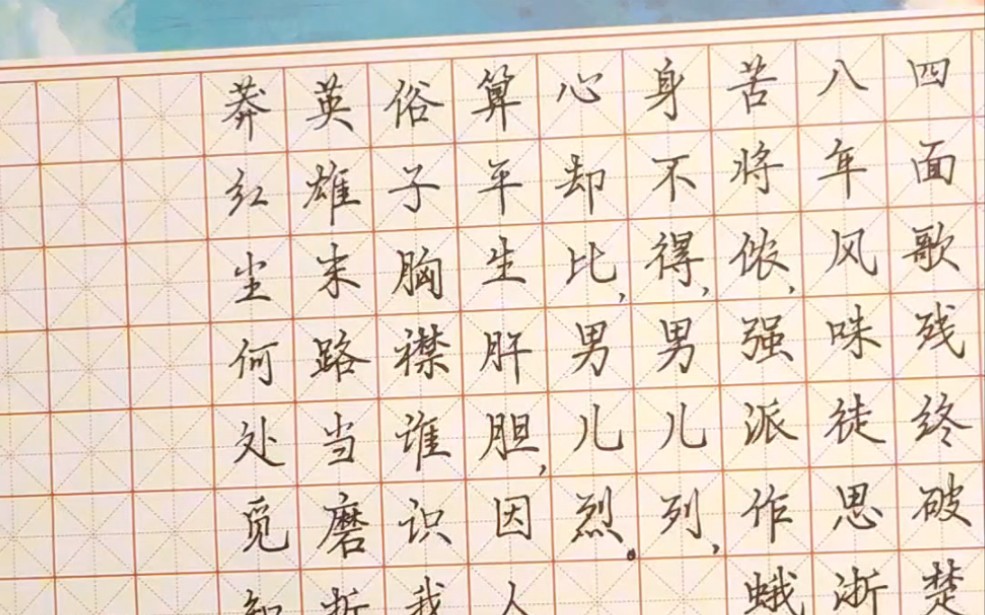 四面歌残终破楚
八年风味徒思浙
苦将侬,强派作蛾
身不得,男儿列,
心却比,男儿烈。
算平生肝胆,因人
俗子胸襟谁识我
英雄末路当磨折
莽红尘何处觅知